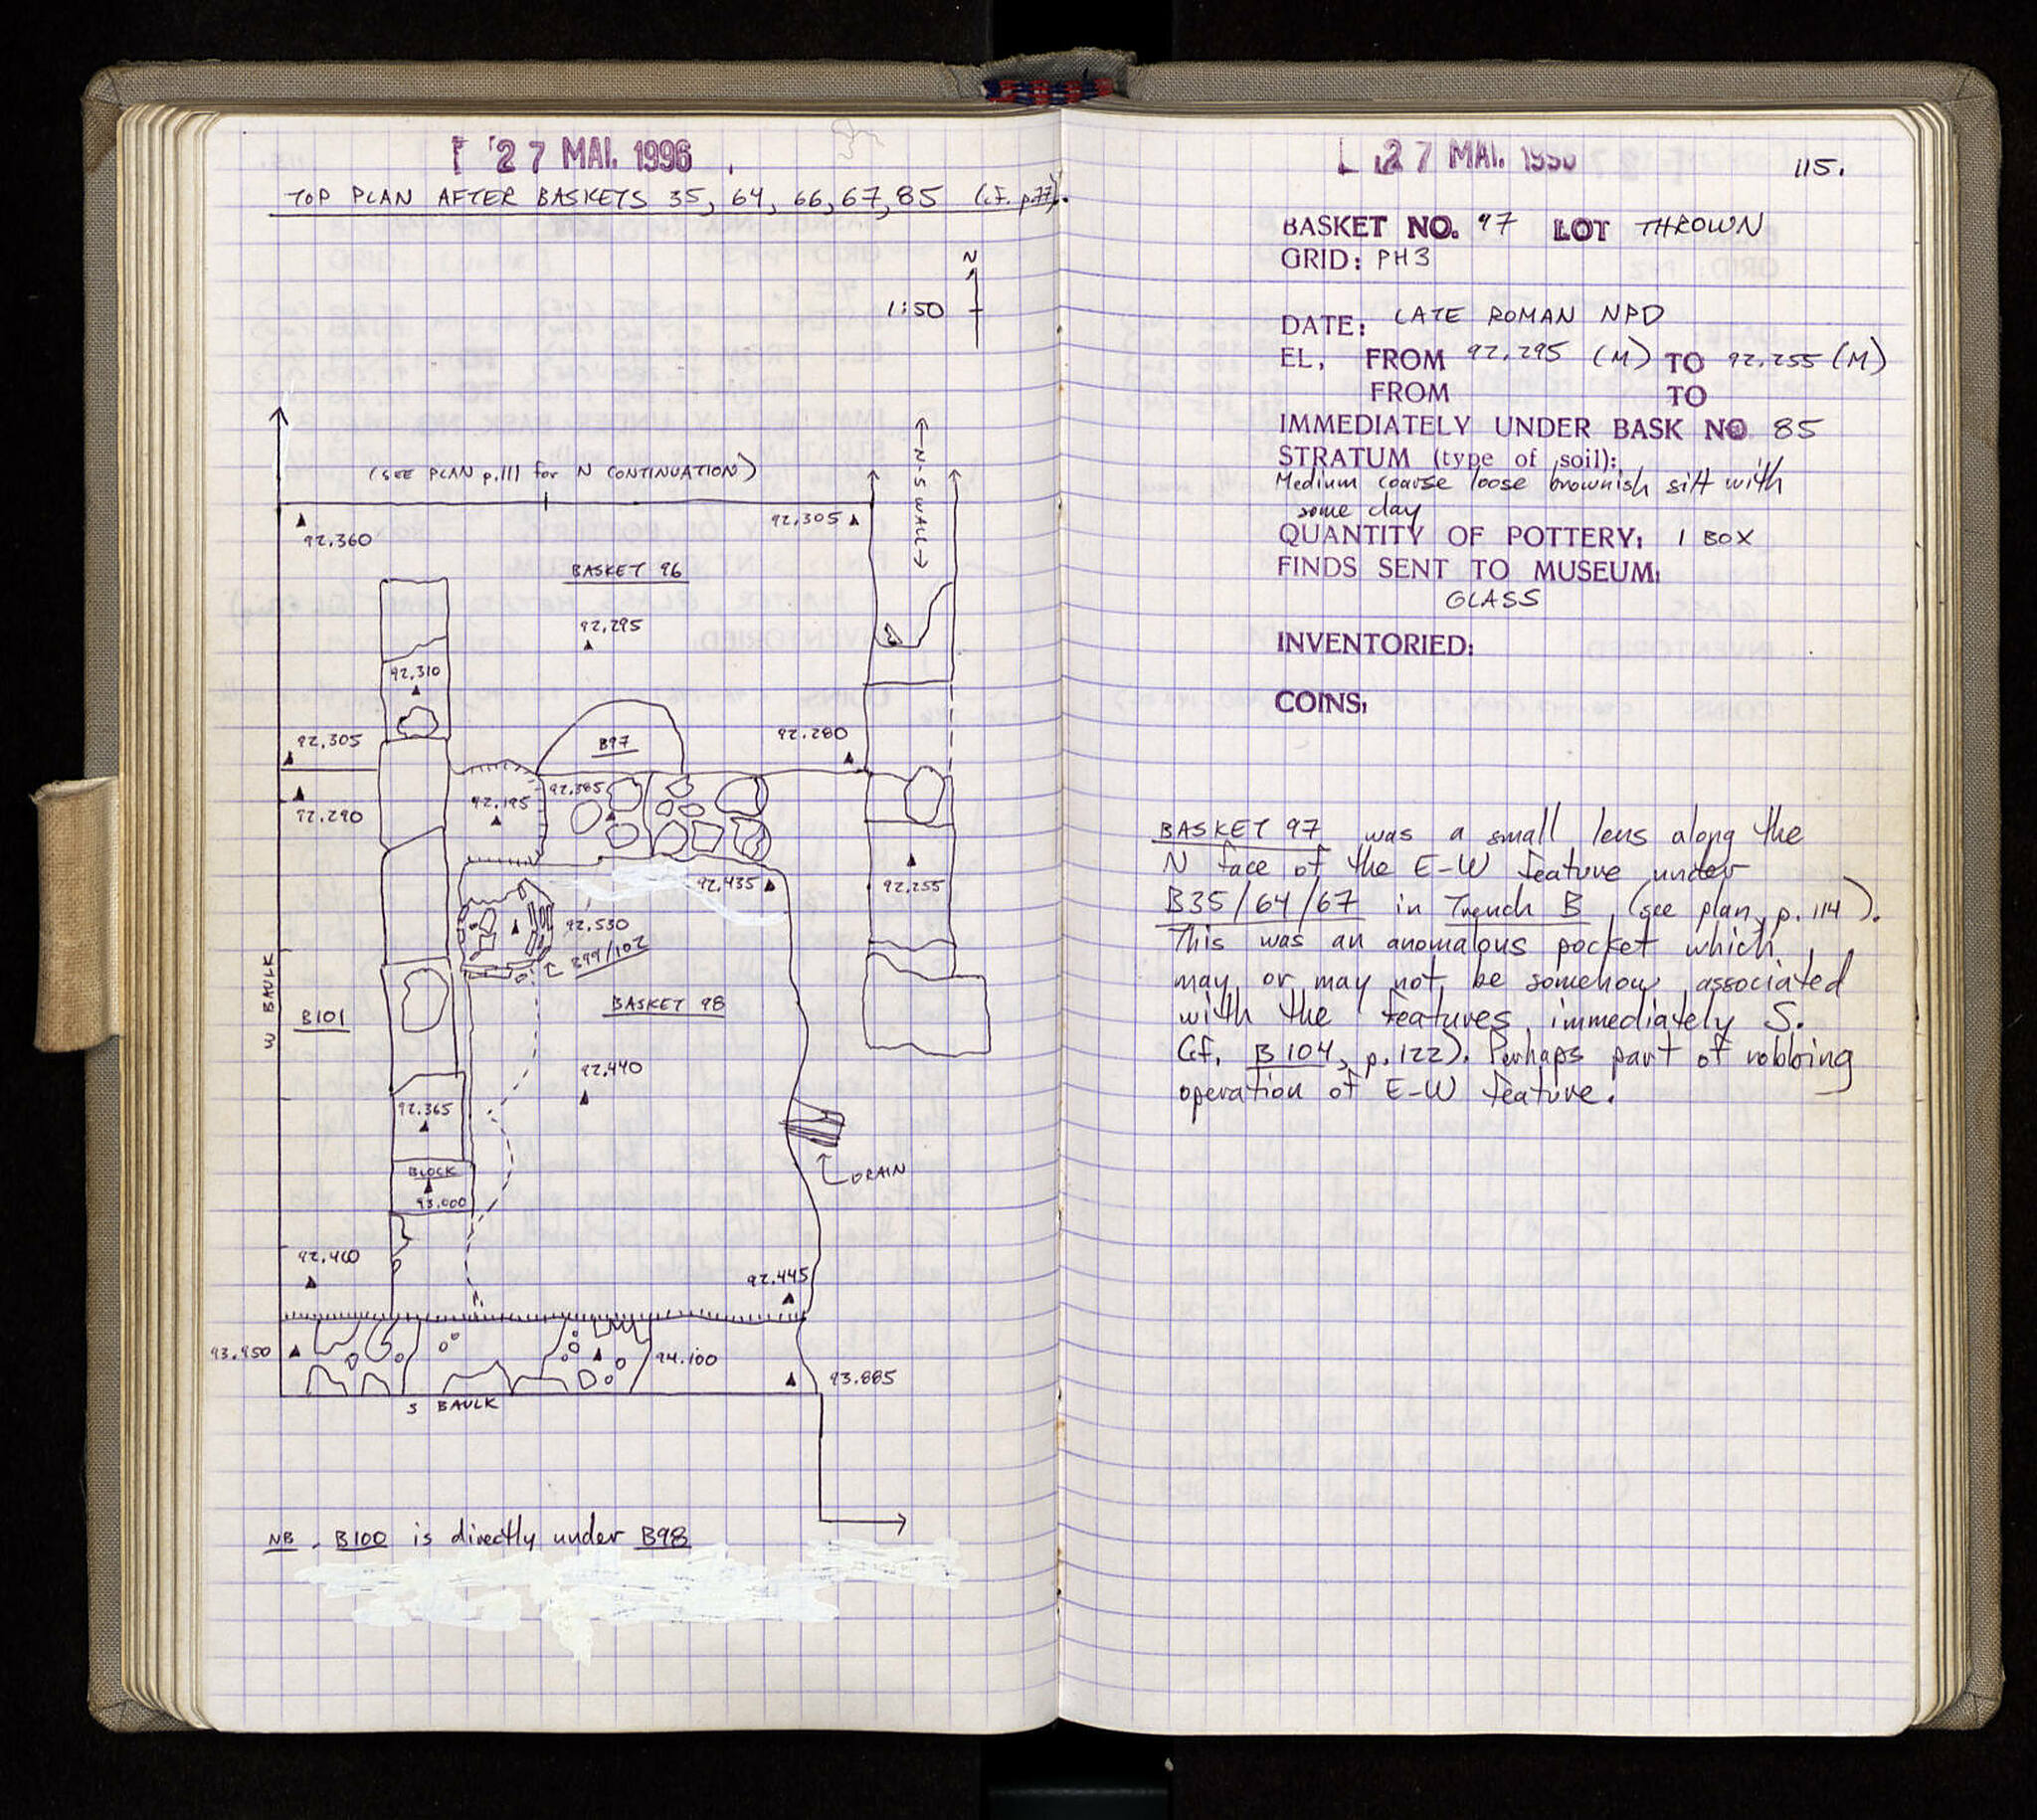 27 MAI. 1996
TOP PLAN AFTER BASKETS 35, 64, 66, 67, 85 (cf. p.77).
N
1:50
(SEE PLAN p.111 for N CONTINUATION)
←N-S WALL→
92.360
92.305
BASKET 96
92.295
92.310
B97
92.305
92.280
92.290
92.195
92.385
92.435
92.255
92.530
B99/102
W BAULK
B101
BASKET 98
92.440
92.365
DRAIN
BLOCK
93.000
92.460
92.445
93.950
94.100
93.885
S BAULK
NB. B100 is directly under B98
27 MAI. 1996
115.
BASKET NO. 97 LOT THROWN
GRID: PH3
DATE: LATE ROMAN NPD
EL, FROM 92.295 (M) TO 92.255 (M)
FROM TO
IMMEDIATELY UNDER BASK NO 85
STRATUM (type of soil):
Medium coarse loose brownish silt with
some clay
QUANTITY OF POTTERY: 1 BOX
FINDS SENT TO MUSEUM:
GLASS
INVENTORIED:
COINS:
BASKET 97 was a small lens along the
N face of the E-W feature under
B35/64/67 in Trench B (see plan, p.114).
This was an anomalous pocket which
may or may not be somehow associated
with the features immediately S.
(cf. B104, p.122). Perhaps part of robbing
operation of E-W feature.